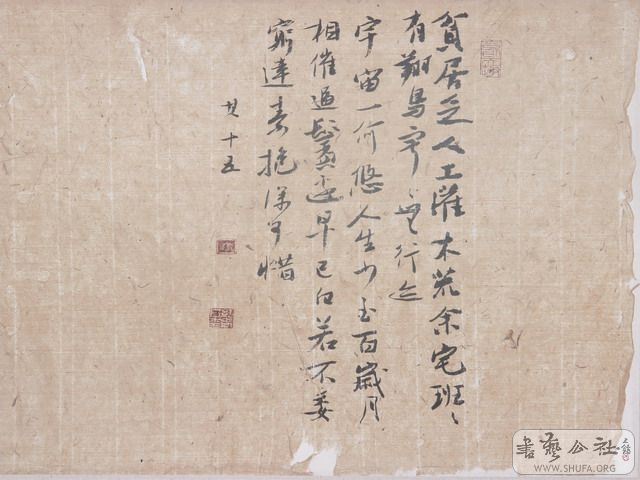 貧居乏人工灌木荒余宅班〻
有翔鳥寂〻無行迹
宇宙一何悠人生少至百歲月
相催逼鬢邊早已白若不委
窮達素抱深可惜
其十五
書藝公社
WWW.SHUFA.ORG